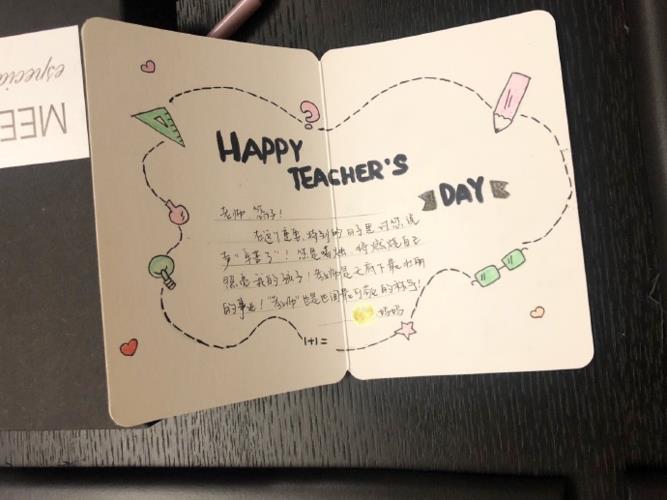 MEE
especia
HAPPY
TEACHER'S
DAY
老师 您好!
在这个重要、特别的日子里 对您说
声“辛苦了”! 您是蜡烛,将燃烧自己
照亮我的孩子! 教师是天底下最光明
的事业! “教师”也是世间最可爱的称乎!
妈妈
1+1=